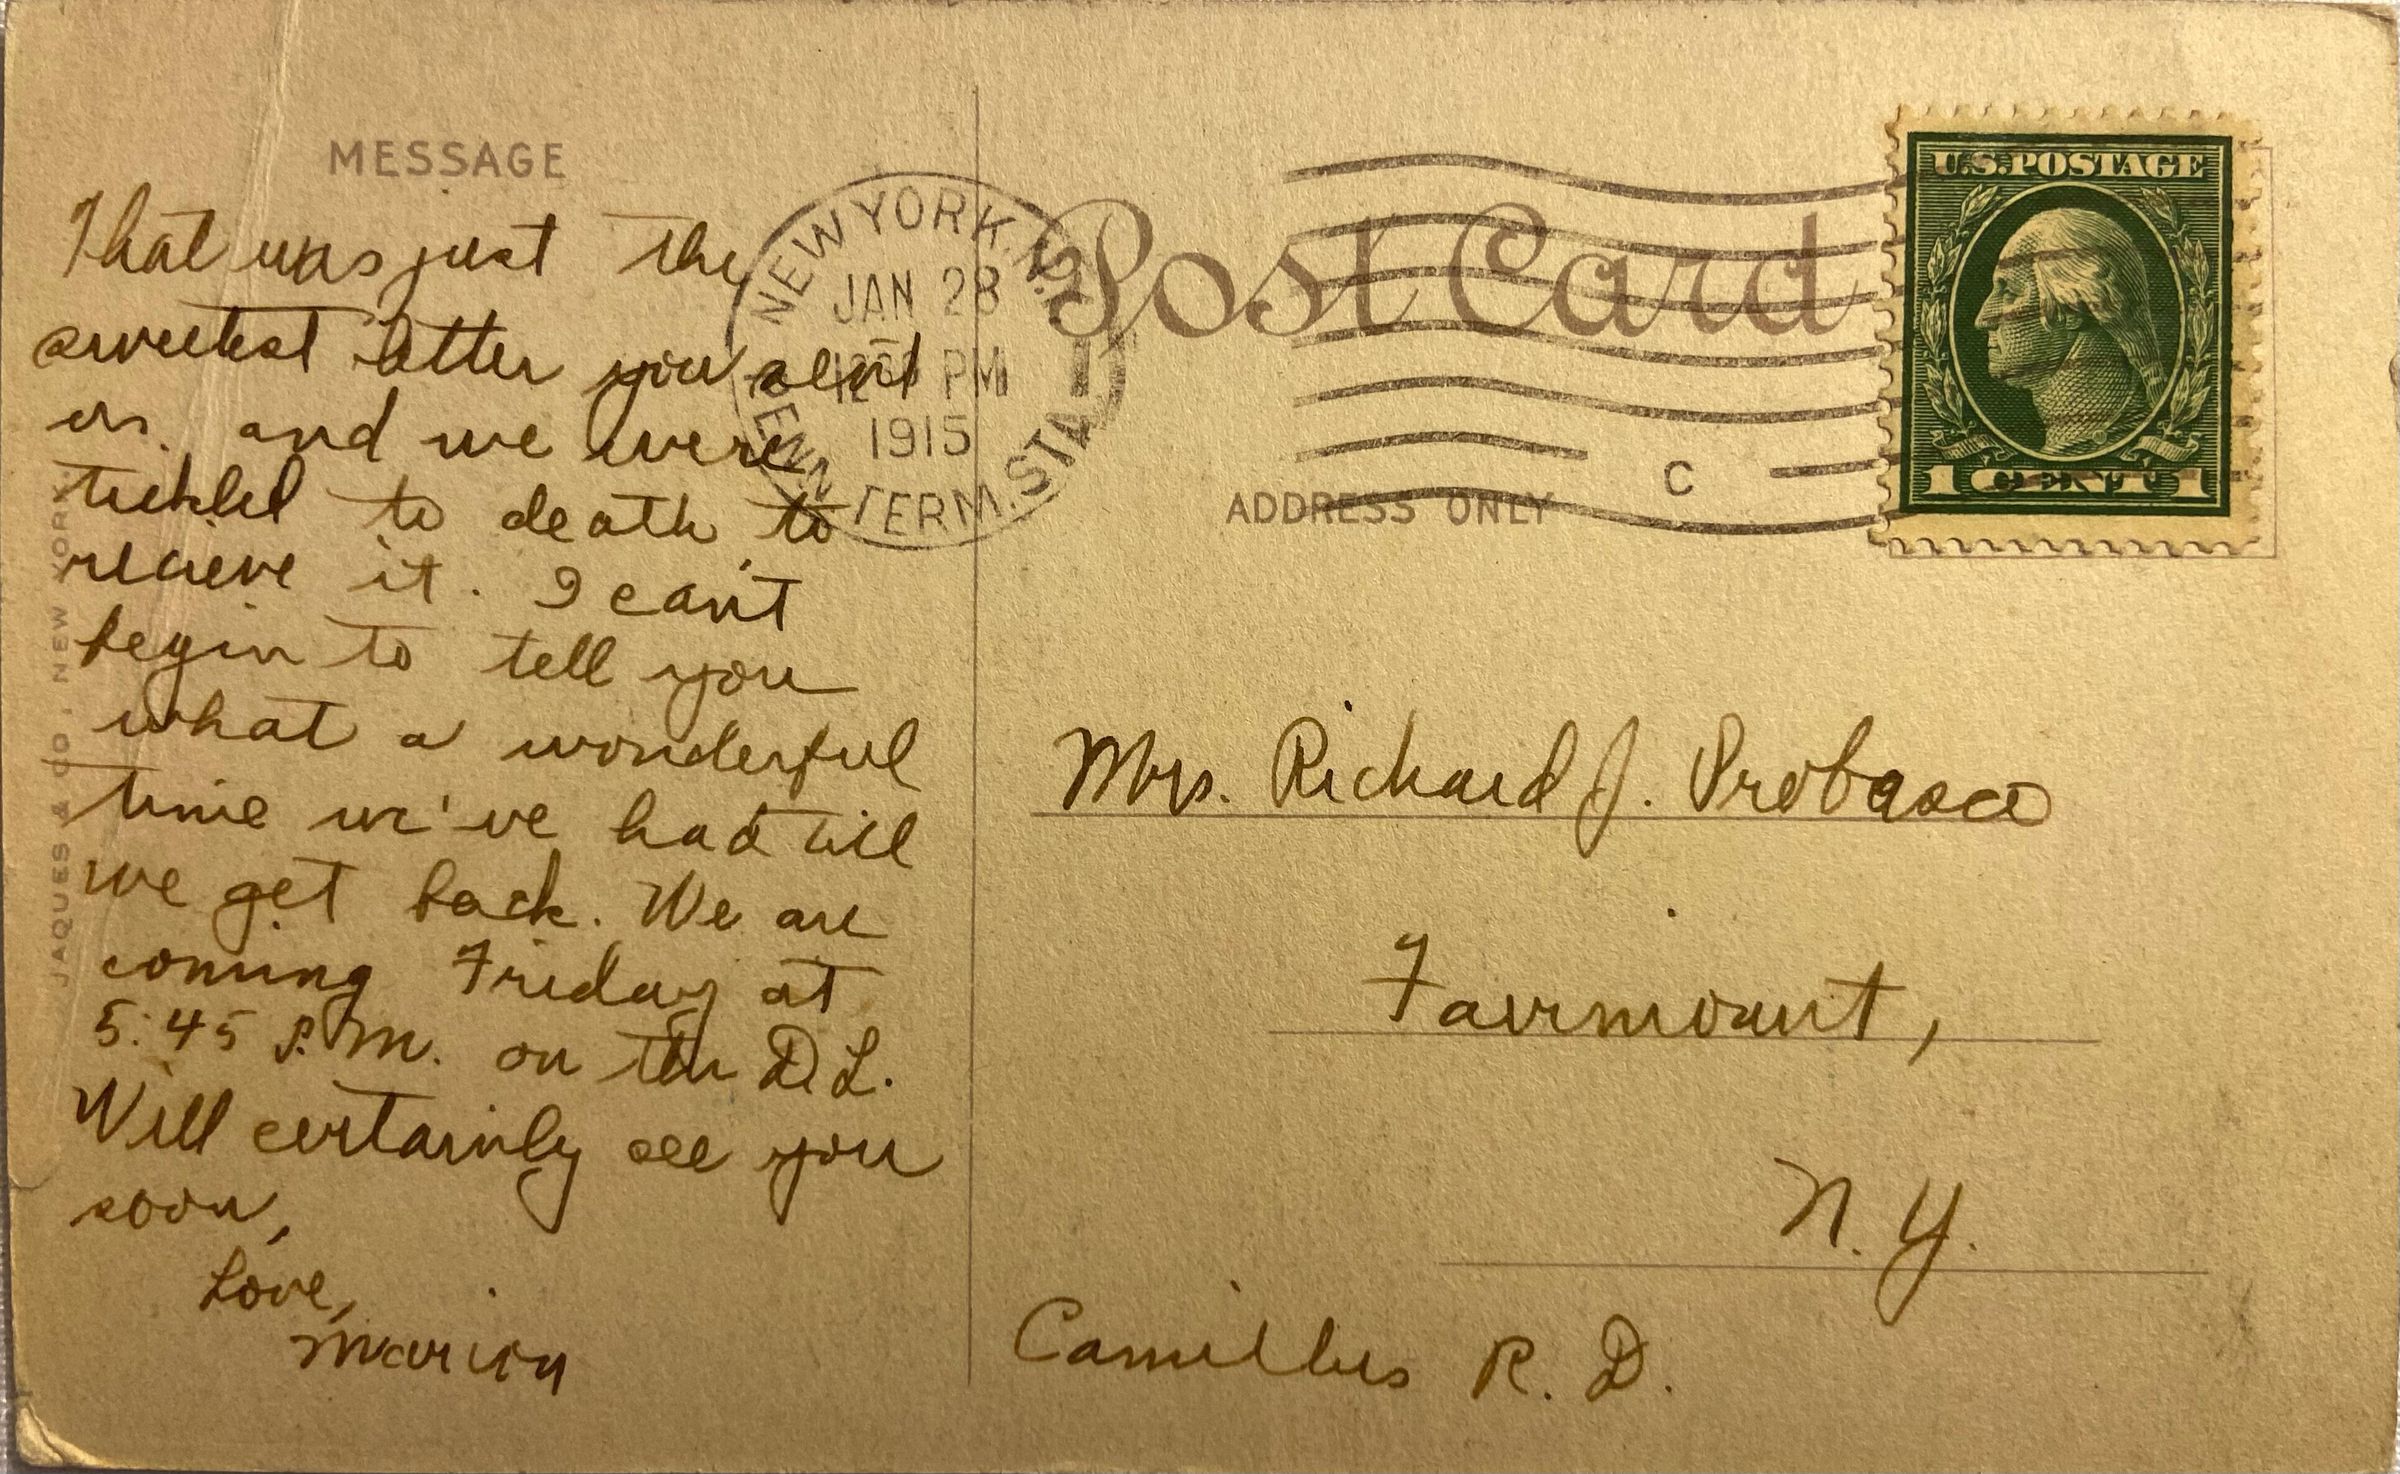 MESSAGE
That was just the
sweetest letter you sent
us. and we were
tickled to death to
recieve it. I can't
begin to tell you
what a wonderful
time we've had till
we get back. We are
coming Friday at
5:45 P.M. on the D.L.
Will certainly see you
soon,
Love,
Marion
JAQUES & CO., NEW YORK
NEW YORK, N.Y.
JAN 28
PM
1915
PENN TERM. STA.
Post Card
C
ADDRESS ONLY
U.S. POSTAGE
1 CENT 1
Mrs. Richard J. Probasco
Fairmount,
N. Y.
Camillus R. D.